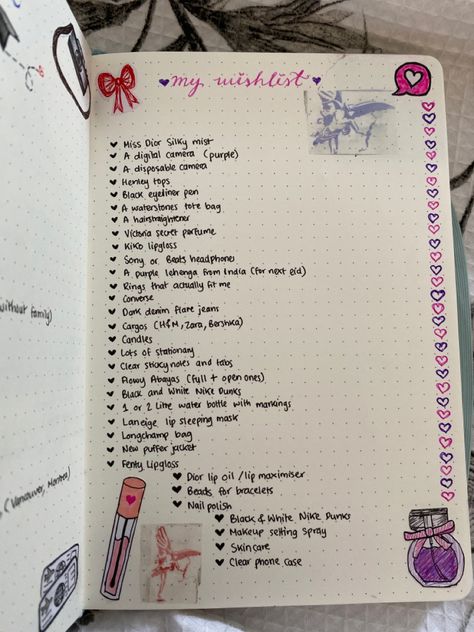 my wishlist
Miss Dior Silky mist
A digital camera (purple)
A disposable camera
Henley tops
Black eyeliner pen
A waterstones tote bag
A hairstraightener
Victoria secret perfume
KiKo lipgloss
Sony or Beats headphones
A purple lehenga from India (for next eid)
Rings that actually fit me
Converse
Dark denim flare jeans
Cargos (H&M, Zara, Bershka)
Candles
Lots of stationary
Clear stickynotes and tabs
Flowy Abayas (full + open ones)
Black and White Nike Dunks
1 or 2 Litre water bottle with markings
Laneige lip sleeping mask
Longchamp bag
New puffer jacket
Fenty Lipgloss
Dior lip oil / lip maximiser
Beads for bracelets
Nail polish
Black & White Nike Dunks
Makeup setting spray
Skincare
Clear phone case
without family)
(Vancouver,